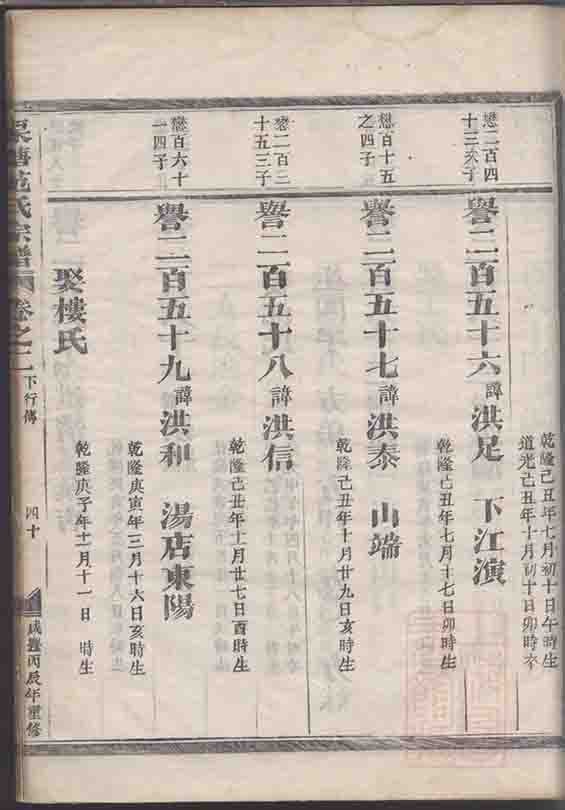 乾隆己丑年七月初十日午時生
道光己丑年十月初十日卯時卒
懋二百四
十三次子
譽二百五十六諱洪足 下江演
乾隆己丑年七月十七日卯時生
懋百十五
之四子
譽二百五十七諱洪泰 山端
乾隆己丑年十月廿九日亥時生
懋二百三
十五三子
譽二百五十八諱洪信
乾隆己丑年十一月廿七日酉時生
懋百六十
一四子
譽二百五十九諱洪和 湯店東陽
乾隆庚寅年三月十六日亥時生
娶樓氏
乾隆庚子年十二月十一日 時生
范氏宗譜 卷之二 下行傳 四十 咸豐丙辰年重修